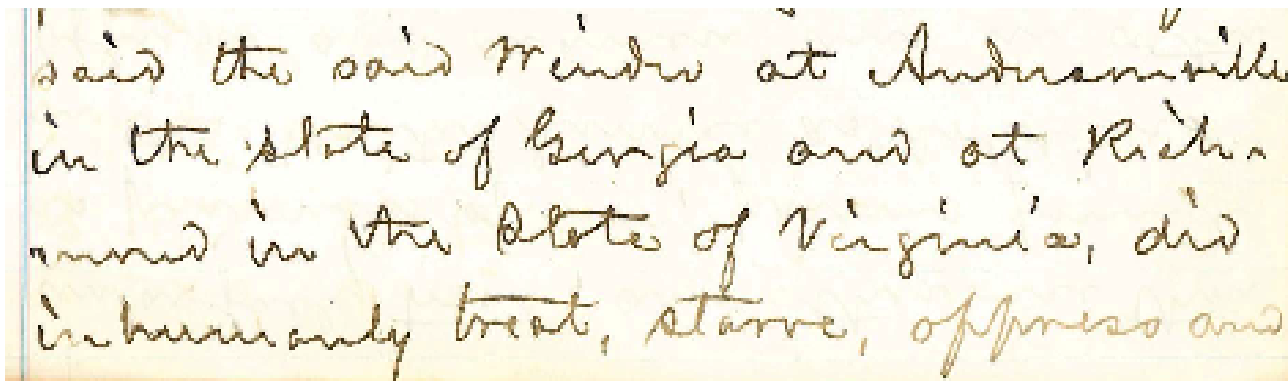 said the said Winder at Andersonville
in the state of Georgia and at Rich-
mond in the State of Virginia, did
inhumanly treat, starve, oppress and